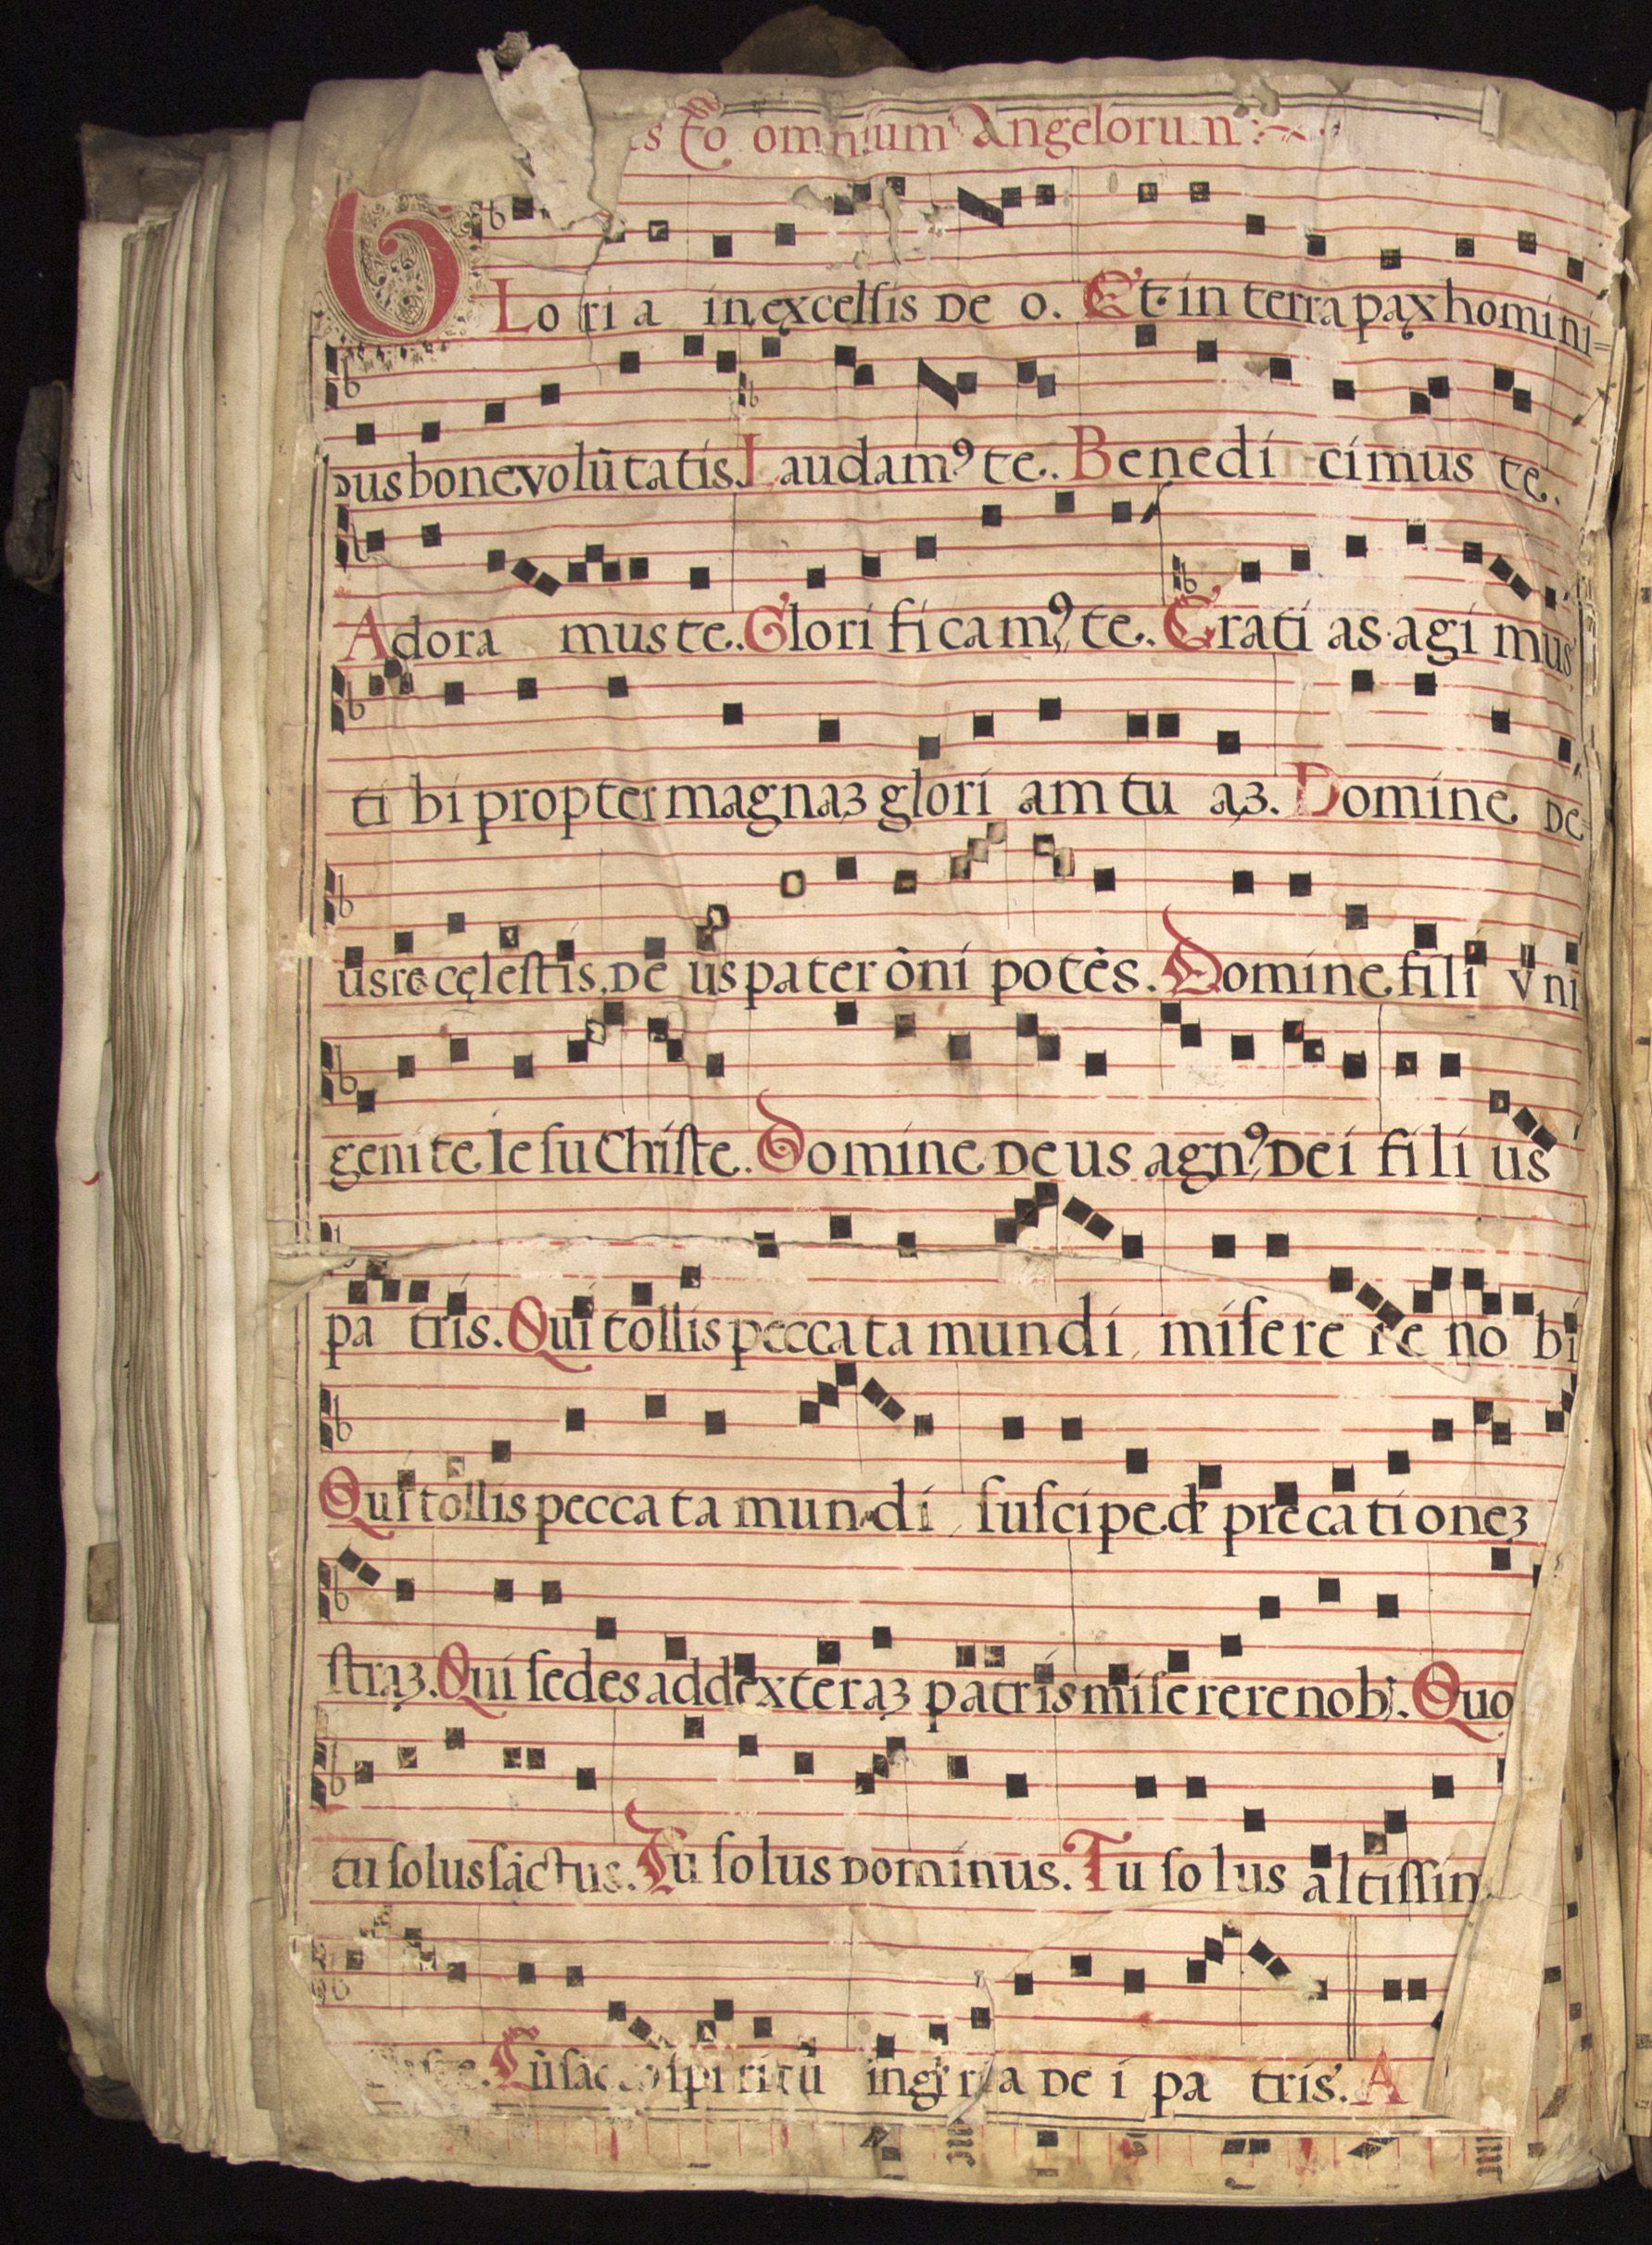 omnium Angelorum
GLoria in excelsis Deo. Et in terra pax homini=
bus bone volūtatis. Laudamꝰ te. Benedicimus te.
Adoramus te. Glorificamꝰ te. Gratias agimus
tibi propter magnaꝫ gloriam tuaꝫ. Domine De
us re celestis. Deus pater oñi potēs. Domine fili vni
genite Iesu Christe. Domine Deus agnꝰ Dei filius
patris. Qui tollis peccata mundi, miserere nobi
Qui tollis peccata mundi suscipe deprecationeꝫ
straꝫ. Qui sedes ad dexteraꝫ patris miserere nob. Quo
tu solus sāctus. Tu solus Dominus. Tu solus altissim
Cū spiritū in De i patris. A